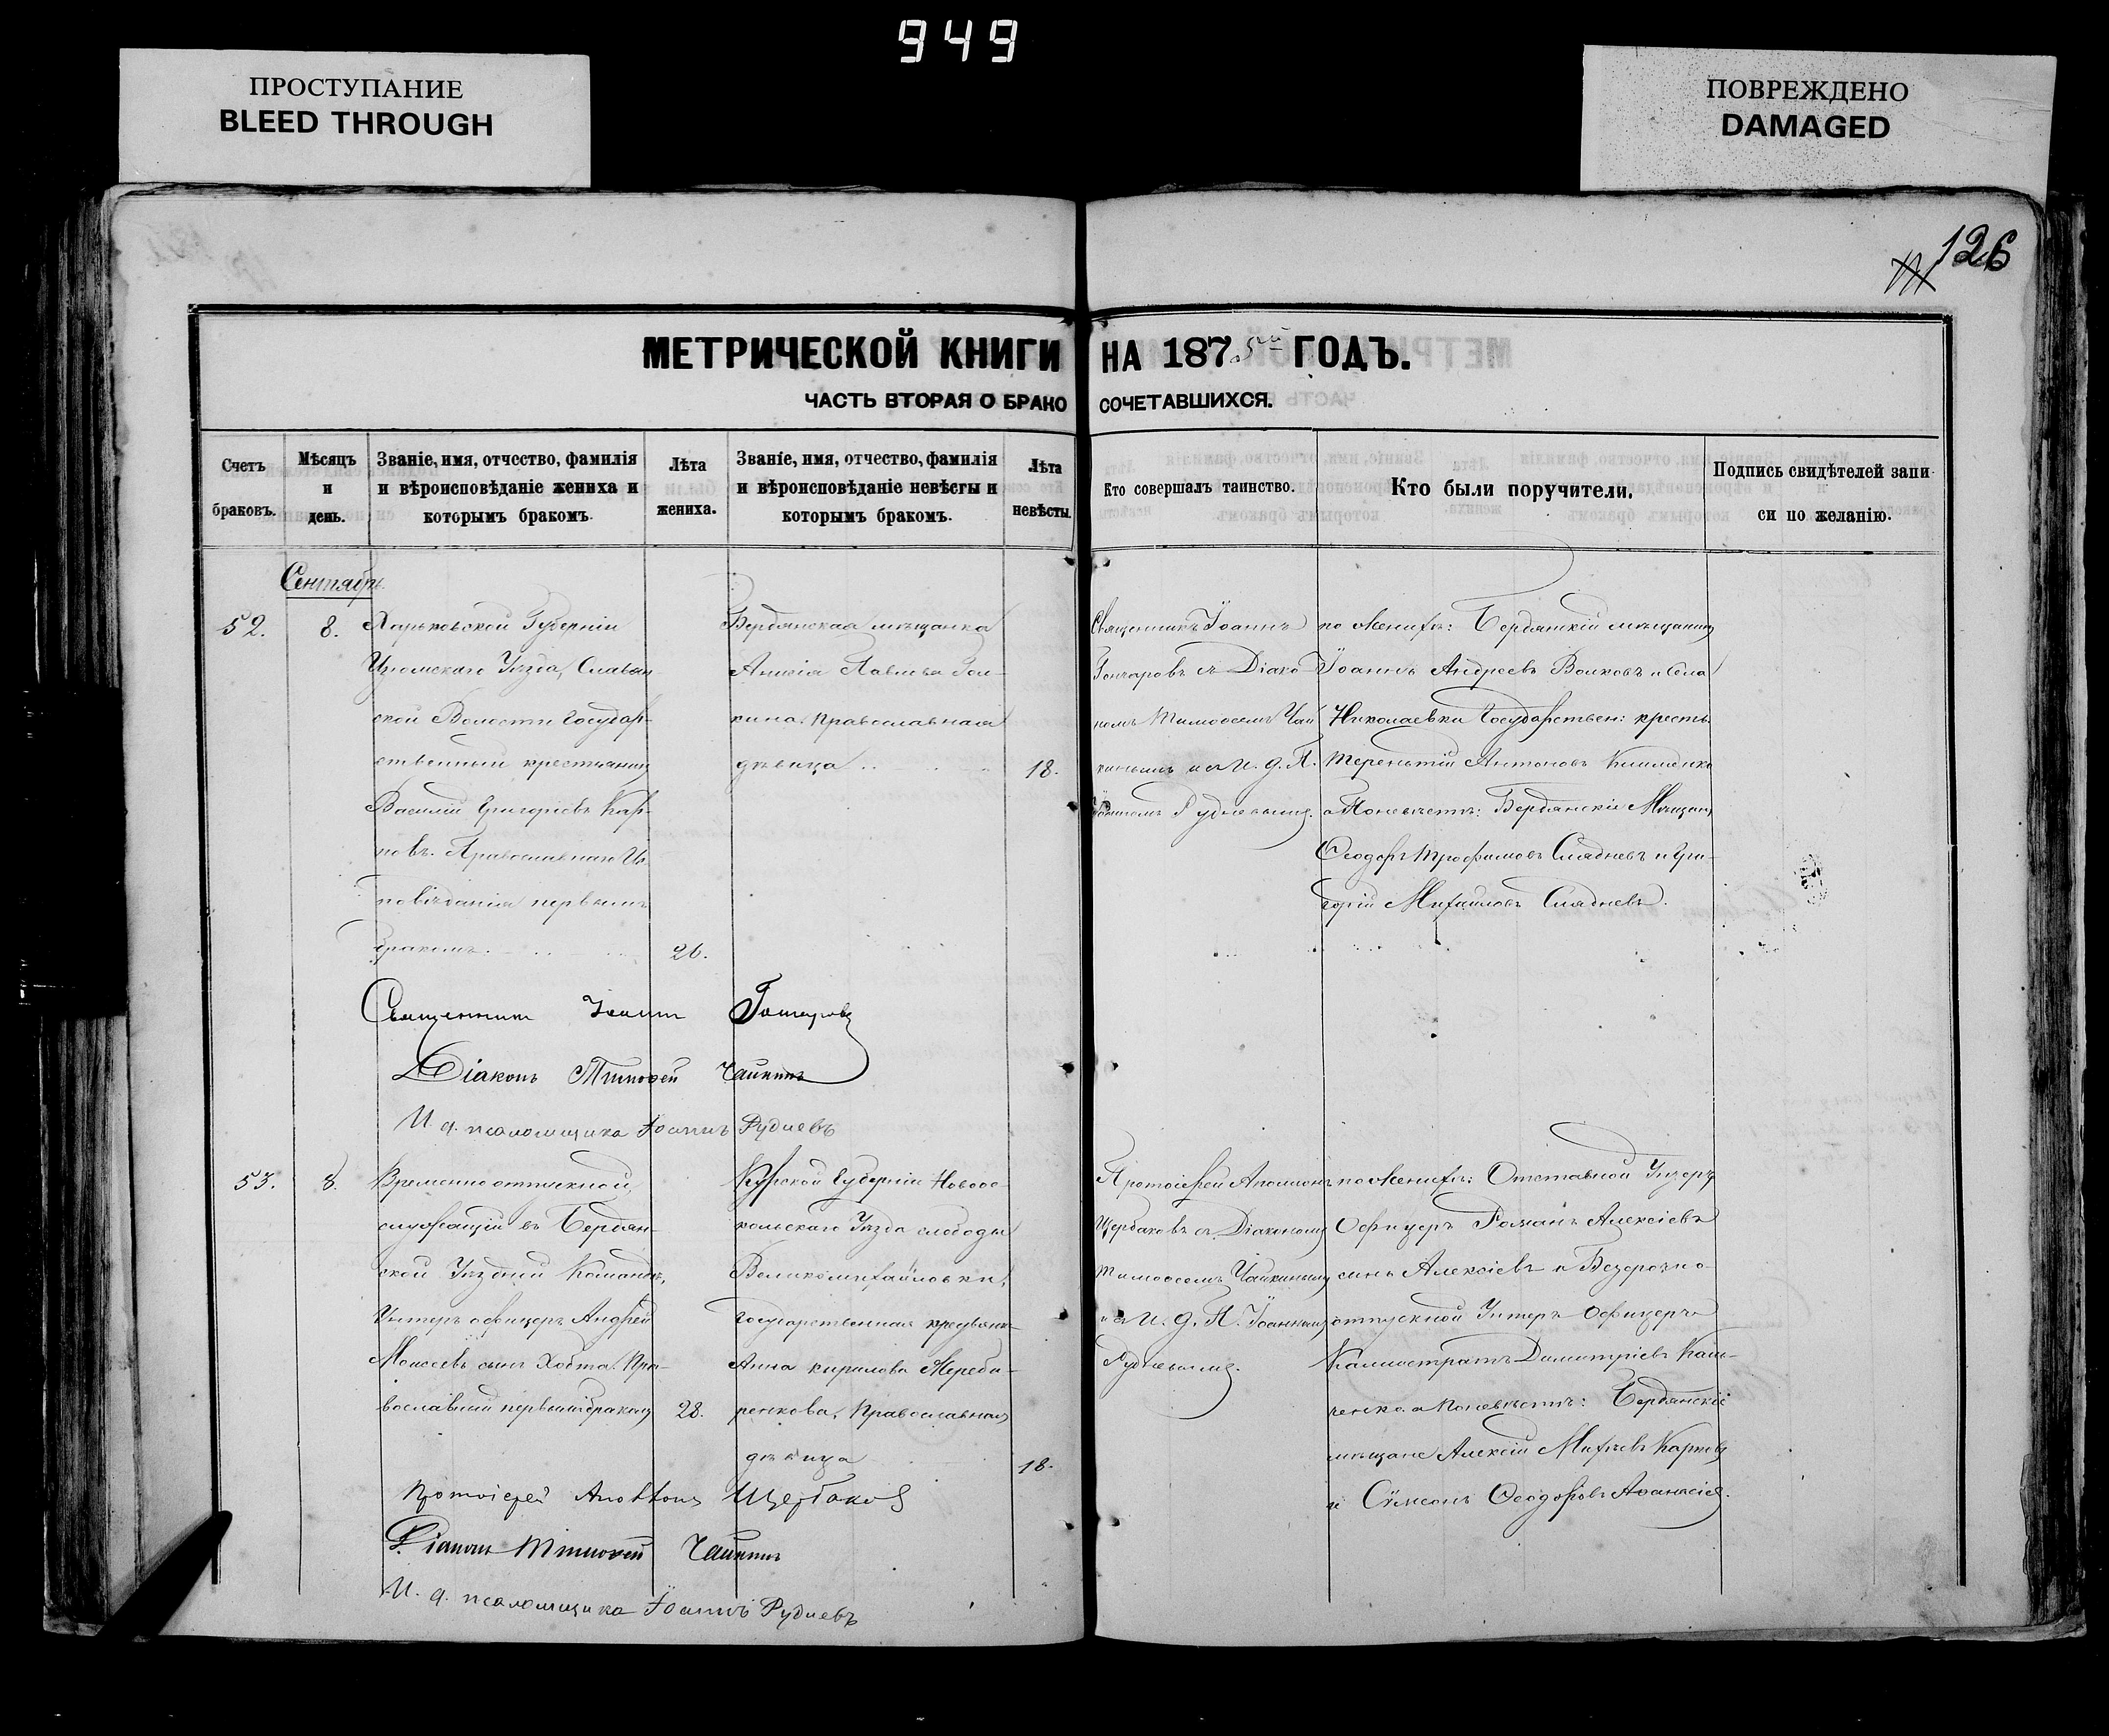 949
ПРОСТУПАНИЕ
BLEED THROUGH
ПОВРЕЖДЕНО
DAMAGED
126
МЕТРИЧЕСКОЙ КНИГИ НА 1875й ГОДЪ.
ЧАСТЬ ВТОРАЯ О БРАКОСОЧЕТАВШИХСЯ.
Счетъ браковъ.
Мѣсяцъ
и
день.
Званіе, имя, отчество, фамилія
и вѣроисповѣданіе жениха и
которымъ бракомъ.
Лѣта
жениха.
Званіе, имя, отчество, фамилія
и вѣроисповѣданіе невѣсты и
которымъ бракомъ.
Лѣта
невѣсты.
Кто совершалъ таинство.
Кто были поручители.
Подпись свидѣтелей запи
си по желанію.
Сентябрь
52.
8.
Харьковской Губерніи
Изюмскаго Уѣзда, Славян
ской Волости Государ-
ственный крестьянинъ
Василій Григорьевъ Кар-
повъ. Православнаго Ис
повѣданія первымъ
бракомъ.
26.
Бердянская мѣщанка
Анисія Павлова
кина, Православная
дѣвица
18.
Священникъ Іоаннъ
Гончаровъ съ Діако
номъ Тимоѳеемъ Чай
кинымъ и съ И. д. П.
Іоанномъ Рудневымъ.
по Женихѣ: Бердянскій мѣщанинъ
Іоаннъ Андреевъ Волковъ и Села
Николаевки Государствен: кресть.
Терентій Антоновъ Клименко
а По невѣстѣ: Бердянскіе Мѣщане
Ѳеодоръ Трофимовъ Слядневъ и Гри-
горій Михайловъ Слядневъ.
Священникъ Іоаннъ Гончаровъ
Діаконъ Тимоѳей Чайкинъ
И. д. псаломщика Іоаннъ Рудневъ
53.
8.
Временно отпускной,
служащій въ Бердян-
ской Уѣздной Командѣ,
Унтеръ офицеръ Андрей
Моисеевъ сынъ Хобта. Пра-
вославный первымъ бракомъ
28.
Курской Губерніи Новоос-
кольскаго Уѣзда слободы
Великомихайловки,
Государственная крестьянк-
Анна Кирилова Жереби-
ренкова, Православная
дѣвица
18.
Протоіерей Аполлонъ
Щербаковъ съ Діакономъ
Тимоѳеемъ Чайкинымъ
и съ И. д. П. Іоанномъ
Рудневымъ.
по Женихѣ: Отставной Унтеръ
Офицеръ Романъ Алексіевъ
сынъ Алексіевъ и Безсрочно-
отпускной Унтеръ Офицеръ
Каллистратъ Димитріевъ Каль-
ченко. а По невѣстѣ: Бердянскіе
мѣщане Алексій Михѣевъ Карповъ
и Сѵмеонъ Ѳеодоровъ
Протоіерей Аполлонъ Щербаковъ
Діаконъ Тимоѳей Чайкинъ
И. д. псаломщика Іоаннъ Рудневъ